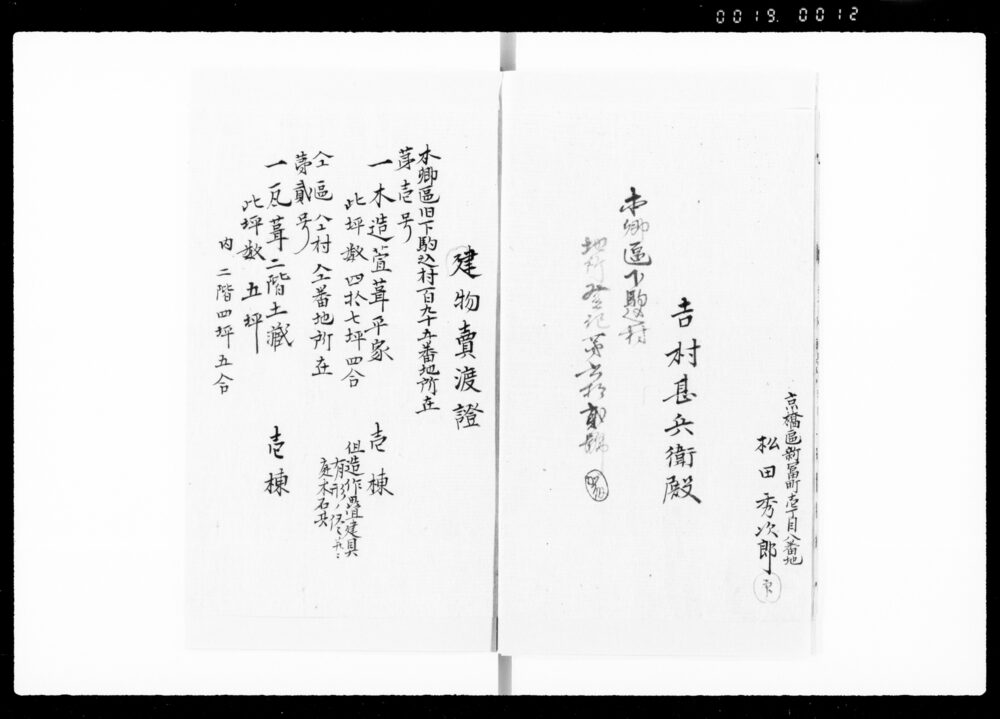 0019. 0012
京橋區新富町壱丁目八番地
松田秀次郎
吉村甚兵衛殿
本郷區下駒込村
地所登記第六拾貳號
建物賣渡證
本郷區旧下駒込村百九十五番地所在
第壱号
一木造萱葺平家 壱棟
此坪数四拾七坪四合
但造作畳建具
有形ノ儘
庭木石共
仝區仝村仝番地所在
第貳号
一瓦葺二階土藏 壱棟
此坪数五坪
内二階四坪五合